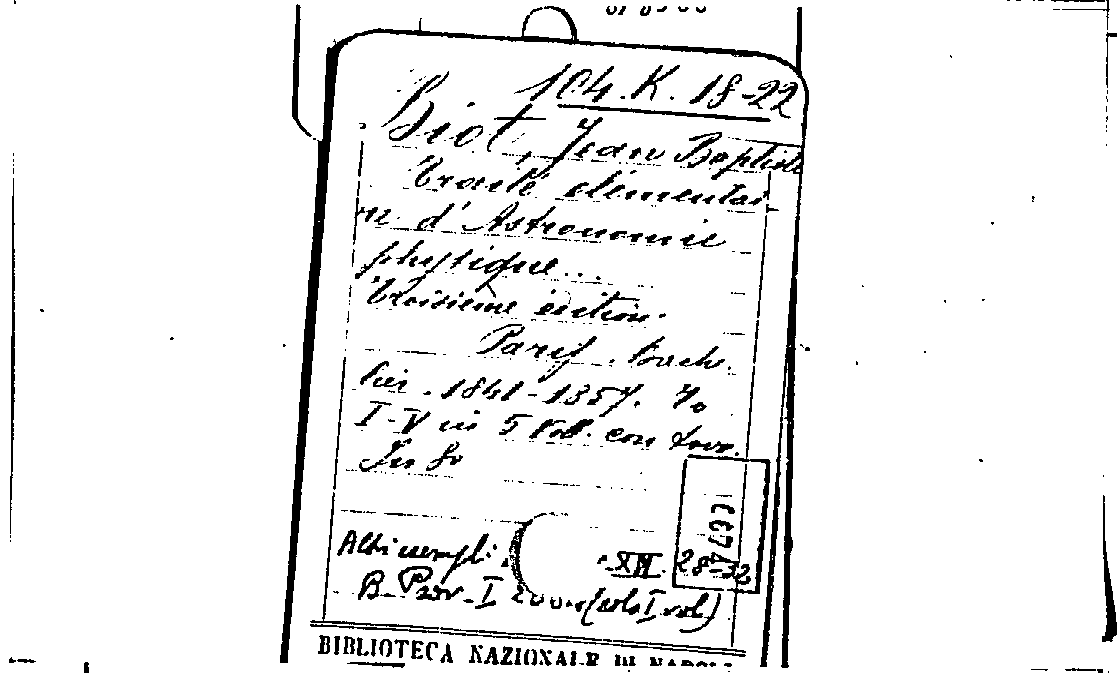 104.K. 18-22
Biot, Jean Baptiste
Traité élémentai
re d'Astronomie
physique...
troisième édition.
Paris. Bache
lier. 1841-1857. To
I-V in 5 Voll. con tavv.
In 8º
Altri esempl:
XII. 28-32
B. Prov. I (solo I vol)
BIBLIOTECA NAZIONALE DI NAPOLI